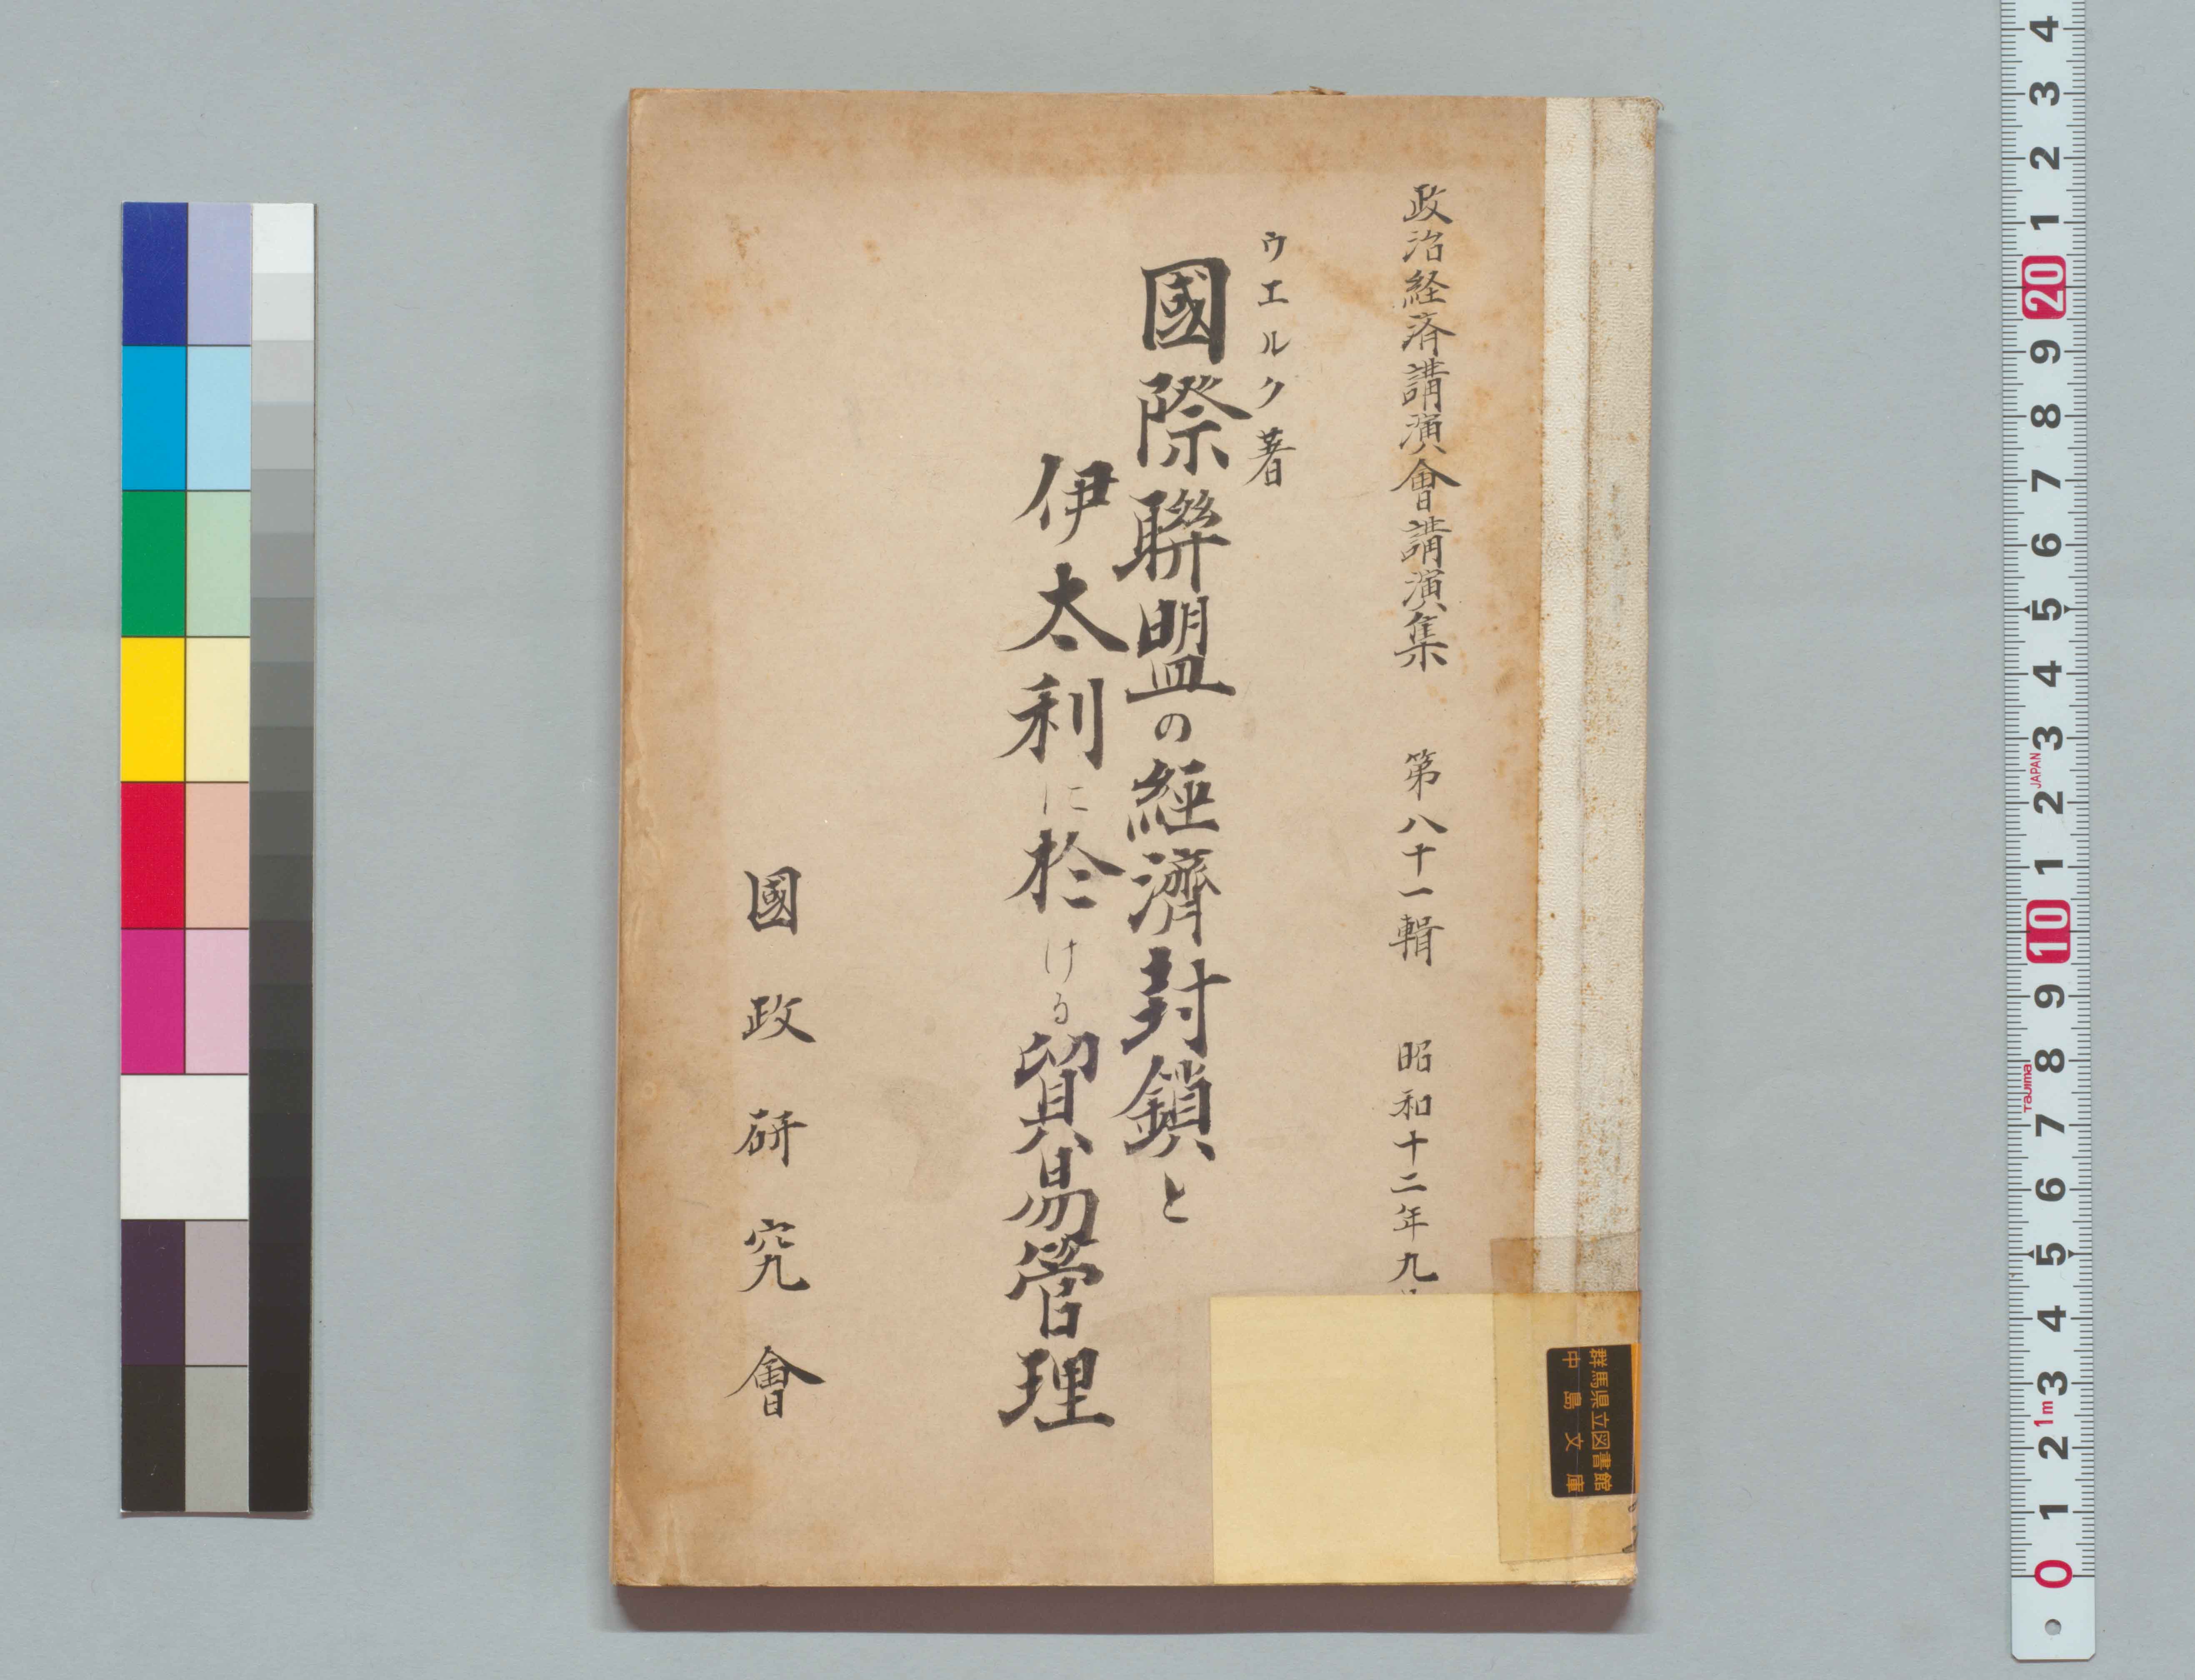 政治経済講演會講演集 第八十一輯 昭和十二年九
ウエルク著
國際聯盟の經濟封鎖と
伊太利に於ける貿易管理
國政研究會
群馬県立図書館
中島文庫
4
3
2
1
20
9
8
7
6
5
4
3
JAPAN
2
1
10
9
8
Tajima
7
6
5
4
3
1m
2
1
0